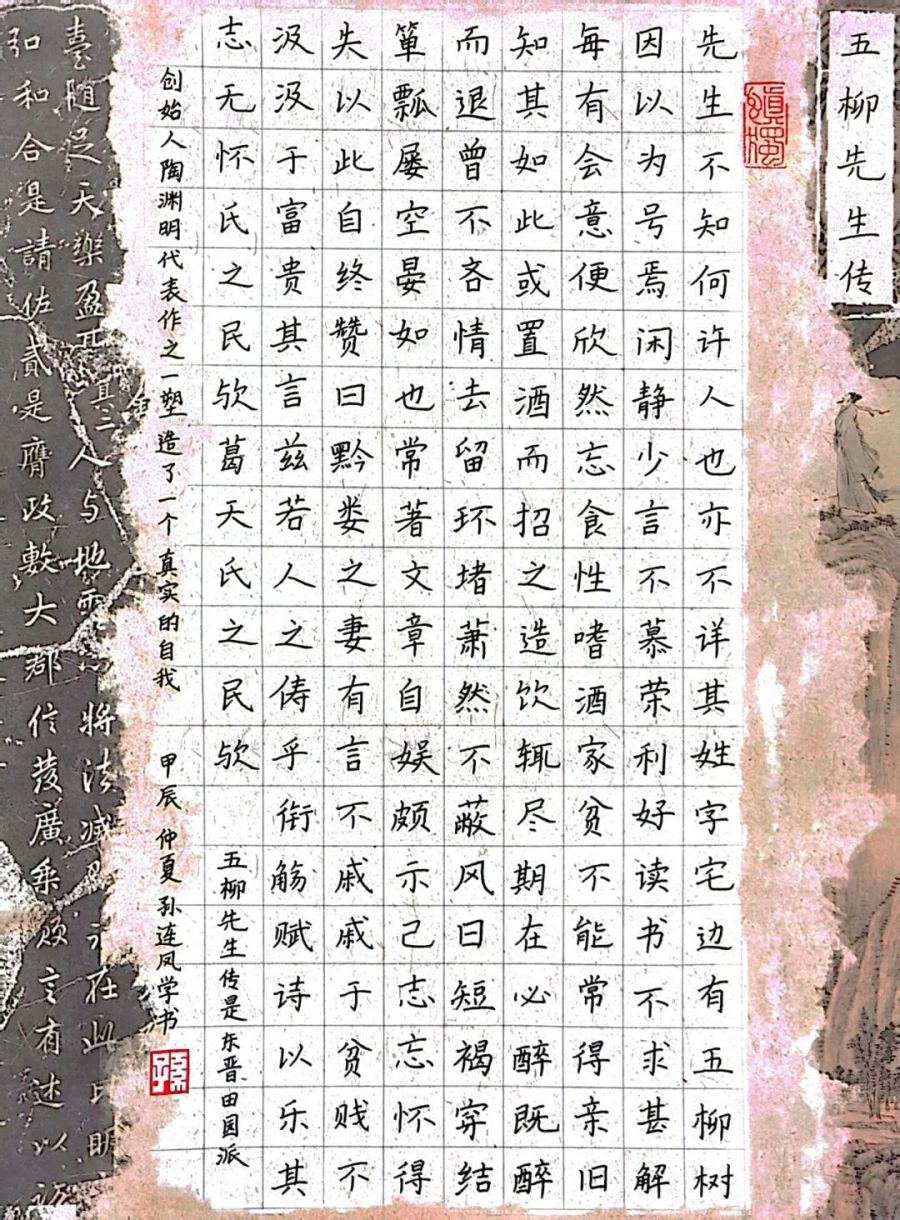 五柳先生传
先生不知何许人也亦不详其姓字宅边有五柳树
因以为号焉闲静少言不慕荣利好读书不求甚解
每有会意便欣然忘食性嗜酒家贫不能常得亲旧
知其如此或置酒而招之造饮辄尽期在必醉既醉
而退曾不吝情去留环堵萧然不蔽风日短褐穿结
箪瓢屡空晏如也常著文章自娱颇示己志忘怀得
失以此自终赞曰黔娄之妻有言不戚戚于贫贱不
汲汲于富贵其言兹若人之俦乎衔觞赋诗以乐其
志无怀氏之民欤葛天氏之民欤 五柳先生传是东晋田园派
创始人陶渊明代表作之一塑造了一个真实的自我 甲辰仲夏孙连凤学书
和合是請佐貳是膺政敷大